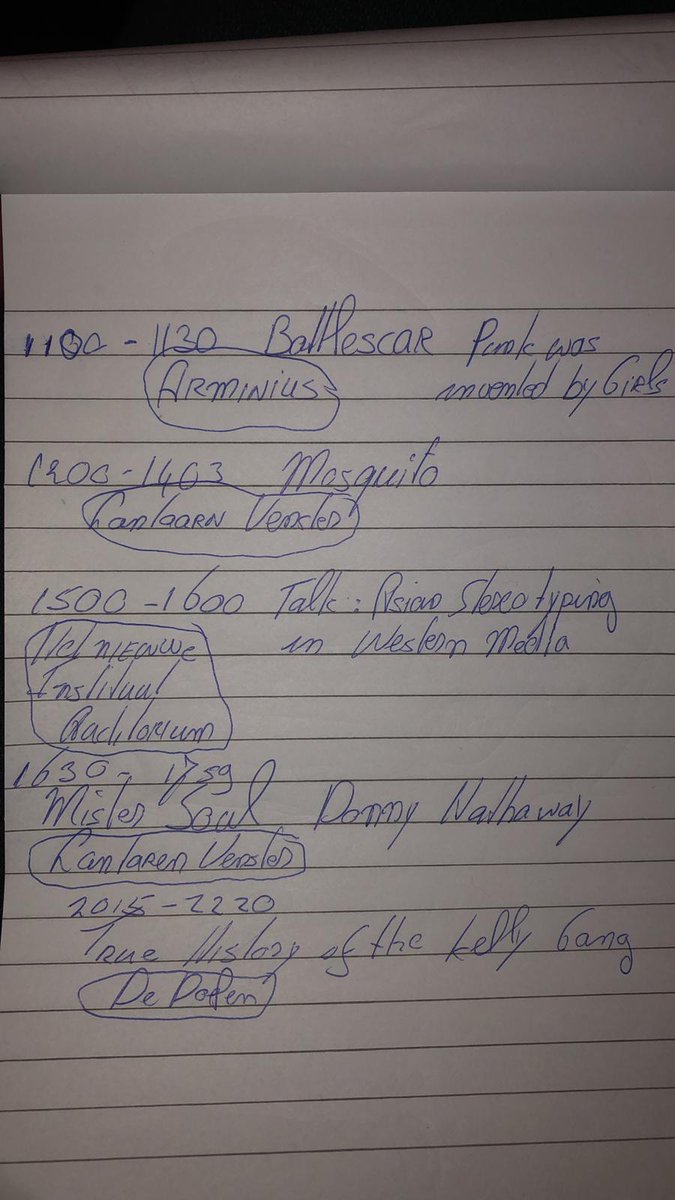 1100 - 1130 Battlescar Punk was
ARMINIUS invented by Girls
1200 - 1403 Mosquito
Lantaarn Venster
1500 - 1600 Talk: Asian Stereotyping
Het NIEUWE in Western Media
Instituut
Auditorium
1630 - 1759
Mister Soul Donny Hathaway
Lantaren Venster
2015 - 2220
True History of the Kelly Gang
De Doelen